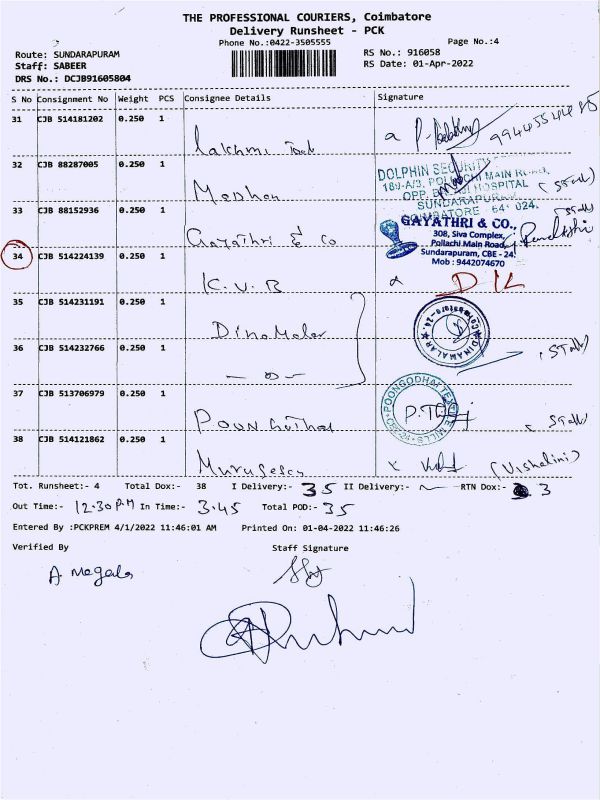 THE PROFESSIONAL COURIERS, Coimbatore
Delivery Runsheet - PCK
Phone No.:0422-3505555
Page No.:4
Route: SUNDARAPURAM
Staff: SABEER
DRS No.: DCJB91605804
RS No.: 916058
RS Date: 01-Apr-2022
S No Consignment No Weight PCS Consignee Details Signature
31 CJB 514181202 0.250 1
Lakshmi
32 CJB 88287005 0.250 1
DOLPHIN SECURITY
189-A/3, POLLACHI MAIN ROAD,
OPP. HOSPITAL
SUNDARAPURAM
COIMBATORE 641 024.
33 CJB 88152936 0.250 1
Gayathri & Co
GAYATHRI & CO.,
308, Siva Complex,
Pollachi Main Road,
Sundarapuram, CBE - 24.
Mob : 9442074670
34 CJB 514224139 0.250 1
K.V.B
D/L
35 CJB 514231191 0.250 1
Dinamalar
DINAMALAR
Coimbatore-24.
36 CJB 514232766 0.250 1
37 CJB 513706979 0.250 1
POONGODHAI TEXTILE MILLS
38 CJB 514121862 0.250 1
Murugesan
(Vishalini)
Tot. Runsheet:- 4 Total Dox:- 38 I Delivery:- 35 II Delivery:- RTN Dox:- 3
Out Time:- 12.30 P.M In Time:- 3.45 Total POD:- 35
Entered By :PCKPREM 4/1/2022 11:46:01 AM Printed On: 01-04-2022 11:46:26
Verified By Staff Signature
A Megala